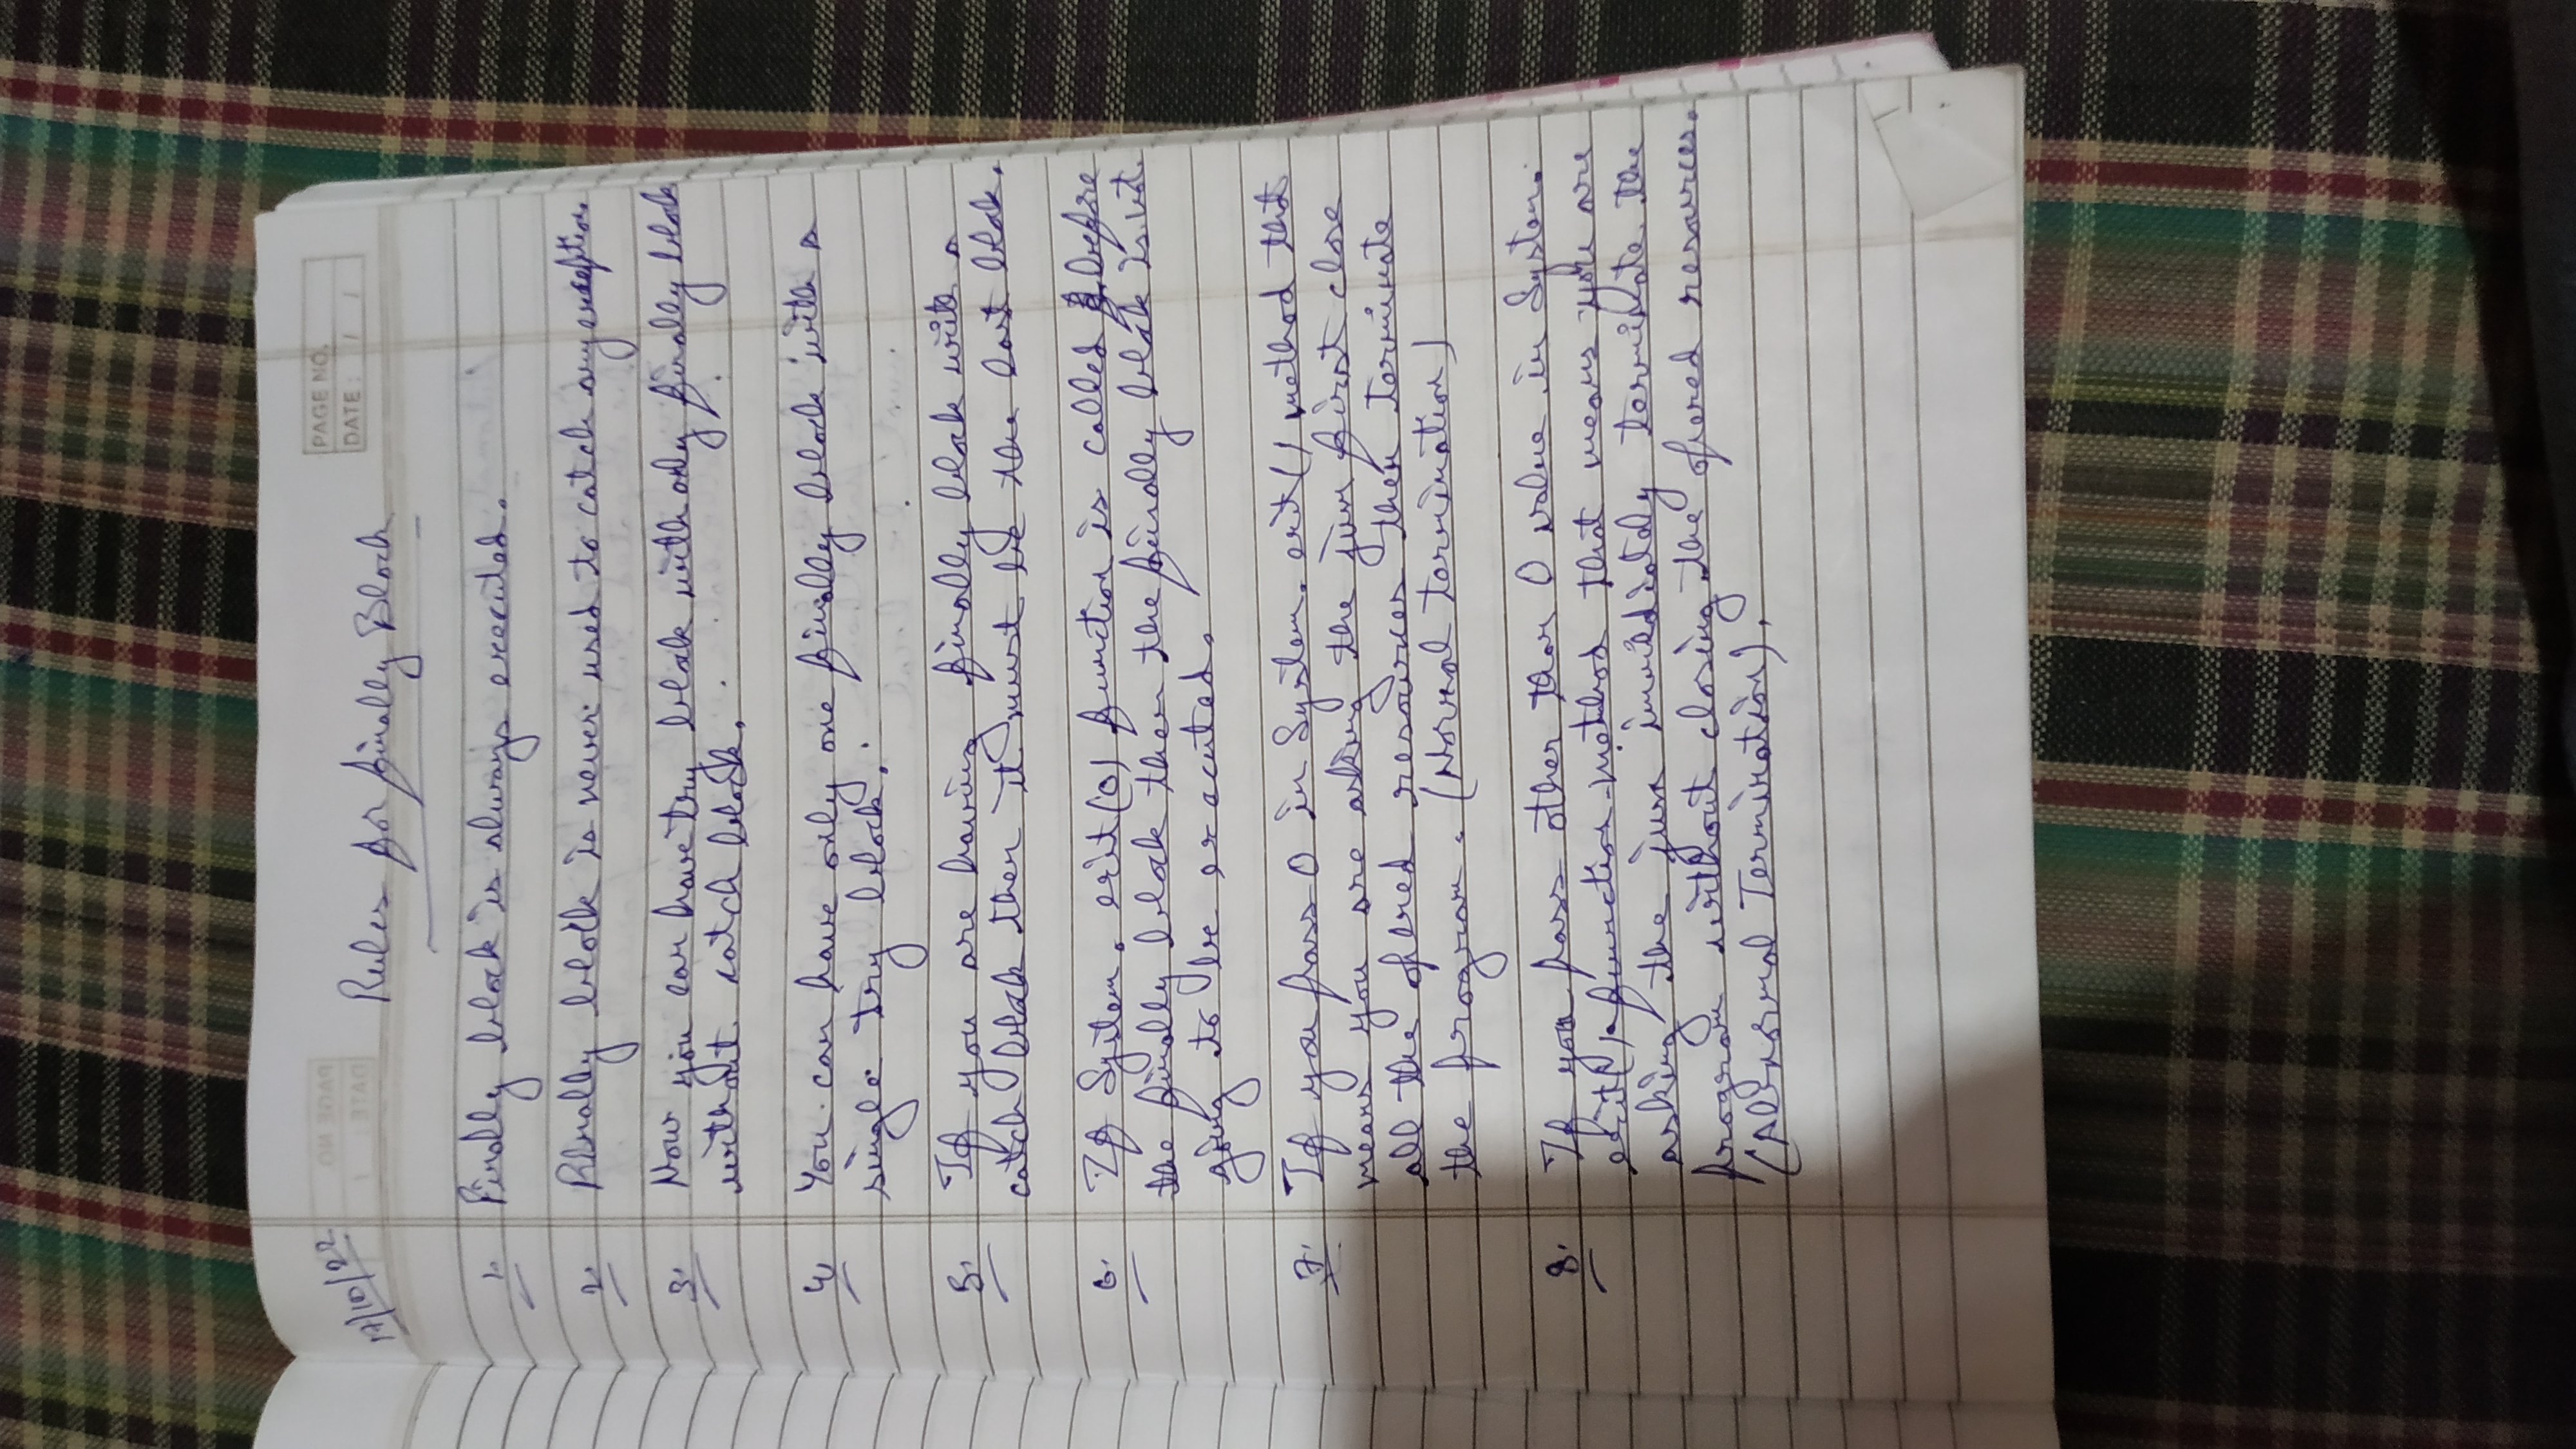 17/10/22
PAGE NO.
DATE : / /
Rules for finally Block
1. Finally block is always executed.
2. Finally block is never used to catch any exception.
3. Now you can have try block with only finally block
without catch block.
4. You can have only one finally block with a
single try block.
5. If you are having finally block write a
catch block then it must be the last block.
6. If System.exit(0) function is called before
the finally block then the finally block is not
going to be executed.
7. If you pass 0 in System.exit() method that
means you are asking the jvm first close
all the opened resources then terminate
the program. (Normal termination)
8. If you pass other than 0 value in System.
exit() function method that means you are
asking the jvm immidiately terminate the
program without closing the opened resources.
(Abnormal Termination).